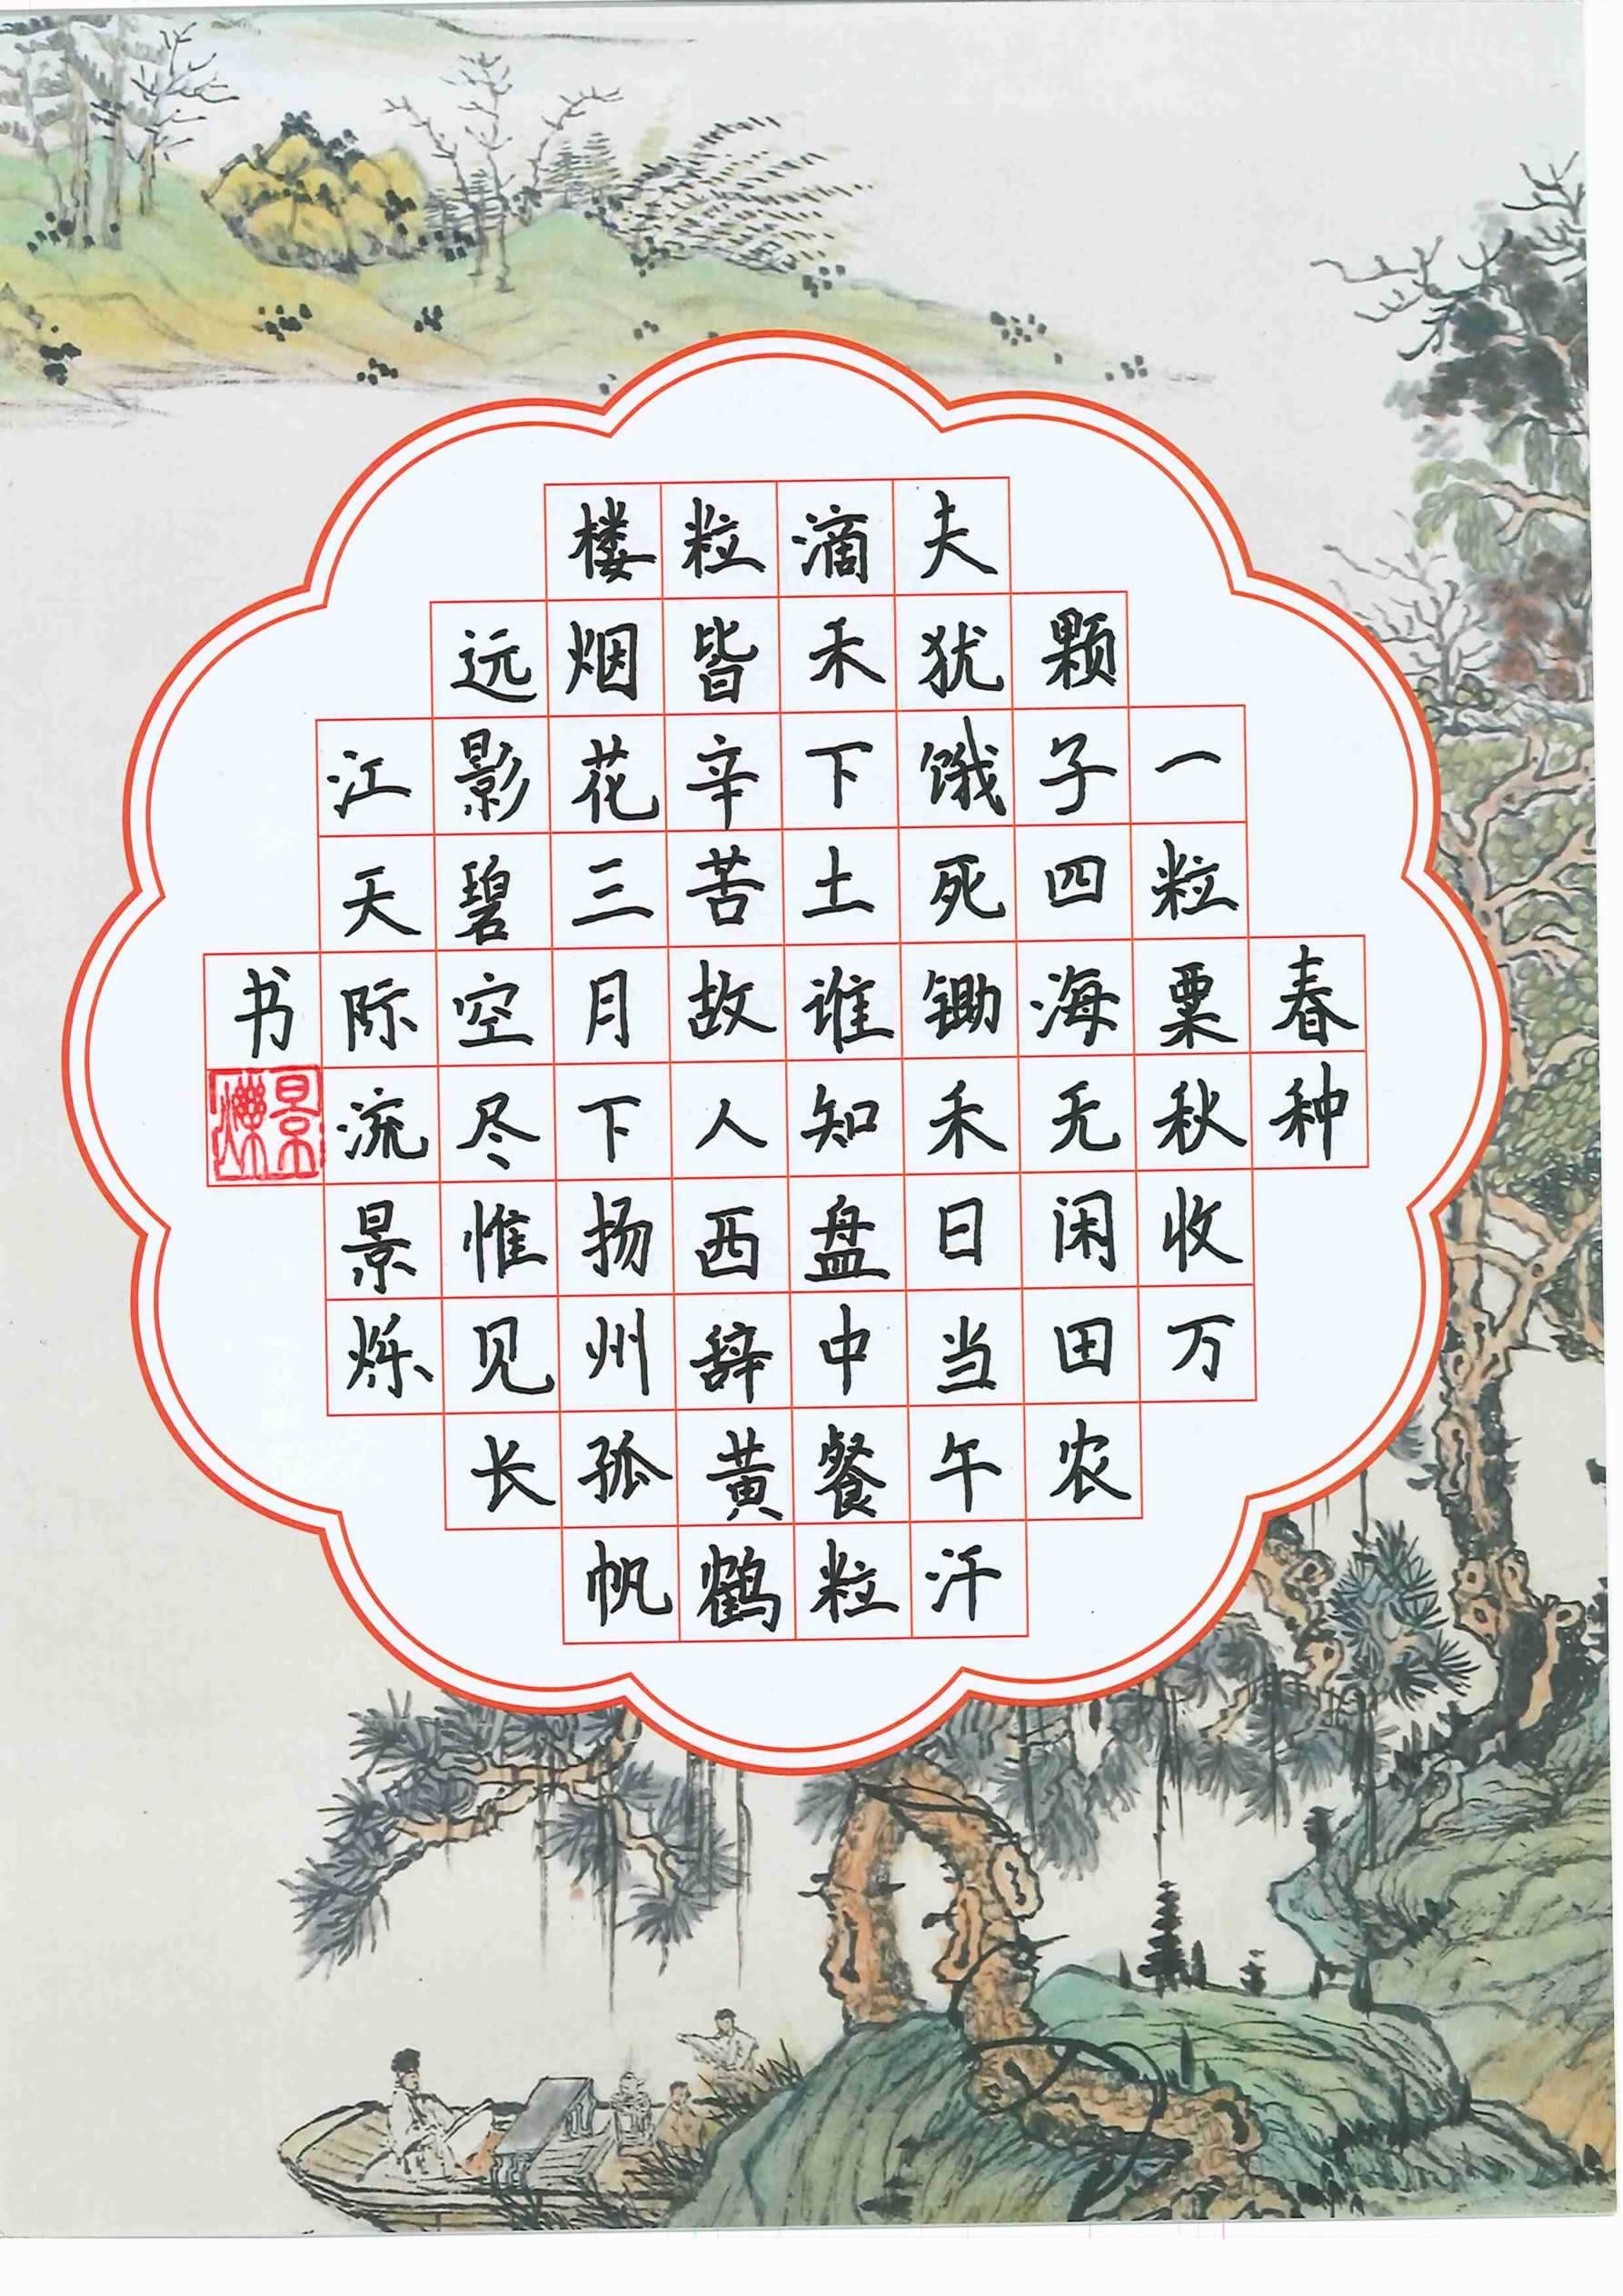 春种
一粒粟秋收万
颗子四海无闲田农
夫犹饿死锄禾日当午汗
滴禾下土谁知盘中餐粒
粒皆辛苦故人西辞黄鹤
楼烟花三月下扬州孤帆
远影碧空尽惟见长
江天际流景烁
书
景烁